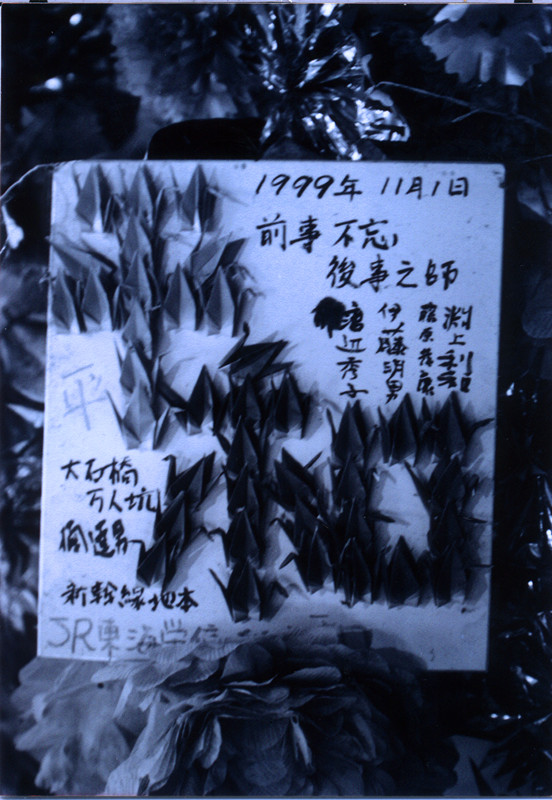 1999年 11月1日
前事不忘,
後事之師
渕上利
藤原
伊藤明男
渡辺秀子
平
大石橋
万人坑
新幹線地本
JR東海労